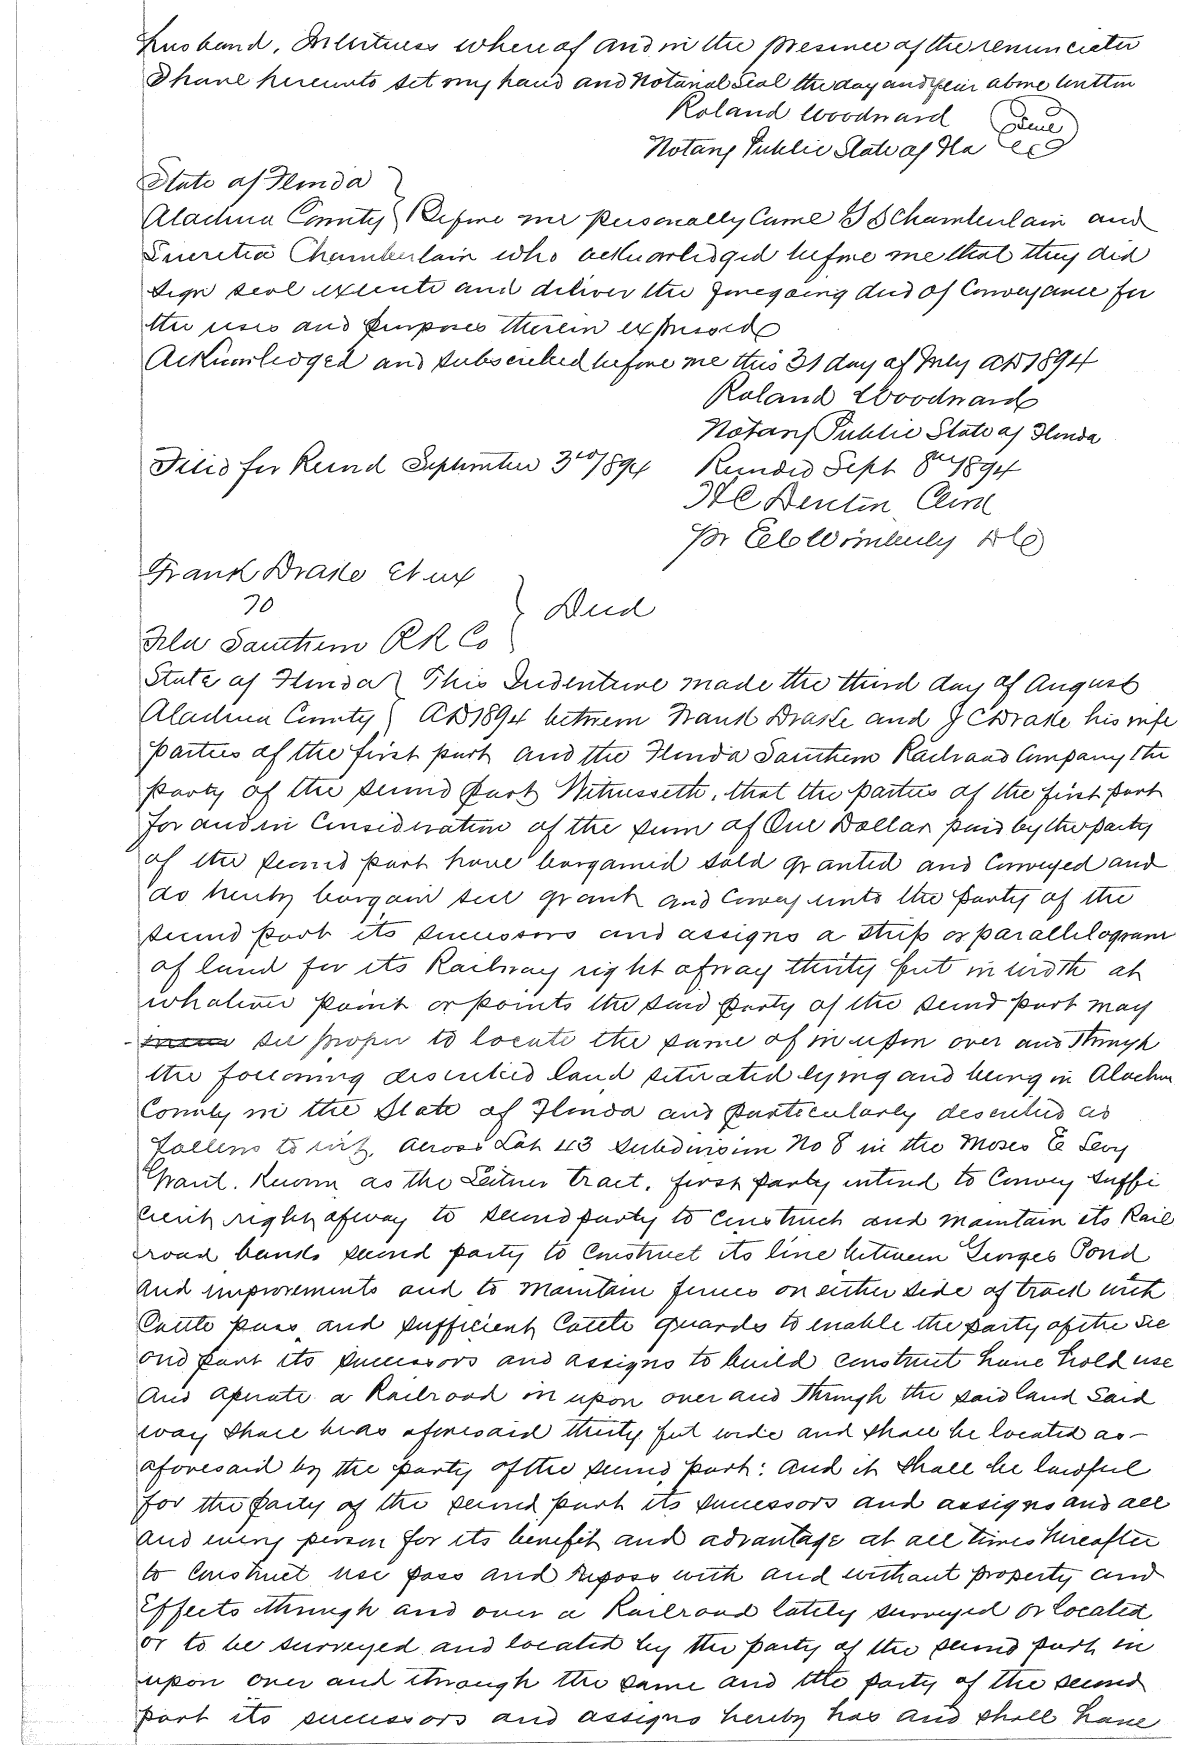 husband. In Witness where of and in the presence of the renunciator
I have hereunto set my hand and Notarial Seal the day and year above written
Roland Woodward
Seal
Notary Public State of Fla
State of Florida
Alachua County } Before me personally Came G S Chamberlain and
Lucretia Chamberlain who acknowledged before me that they did
sign seal execute and deliver the foregoing deed of Conveyance for
the uses and purposes therein expressed
Acknowledged and subscribed before me this 31 day of July AD 1894
Roland Woodward
Notary Public State of Florida
Filed for Record September 3rd 1894 Recorded Sept 8th 1894
H C Denton Clerk
pr E C Wimberly D C
Frank Drake Et ux
To } Deed
Fla Southern R R Co
State of Florida } This Indenture made the third day of August
Alachua County } AD 1894 between Frank Drake and J C Drake his wife
parties of the first part and the Florida Southern Railroad Company the
party of the second part Witnesseth, that the parties of the first part
for and in Consideration of the sum of One Dollar paid by the party
of the second part have bargained sold granted and Conveyed and
do hereby bargain sell grant and Convey unto the party of the
second part its successors and assigns a strip or parallelogram
of land for its Railway right of way thirty feet in width at
whatever point or points the said party of the second part may
see proper to locate the same of in upon over and through
the following described land situated lying and being in Alachua
County in the State of Florida and particularly described as
follows to wit, Across Lot 43 subdivision No 8 in the Moses E Levy
Grant. Known as the Leitner tract, first party intend to Convey suffi
cient right of way to second party to construct and maintain its Rail
road banks second party to construct its line between Georges Pond
and improvements and to maintain fences on either side of track with
Cattle pass and sufficient Cattle guards to enable the party of the Sec
ond part its successors and assigns to build construct have hold use
and operate a Railroad in upon over and through the said land Said
way shall be as aforesaid thirty feet wide and shall be located as-
aforesaid by the party of the second part: and it shall be lawful
for the party of the second part its successors and assigns and all
and every person for its benefit and advantage at all times hereafter
to construct use pass and repass with and without property and
Effects through and over a Railroad lately surveyed or located
or to be surveyed and located by the party of the second part in
upon over and through the same and the party of the second
part its successors and assigns hereby has and shall have